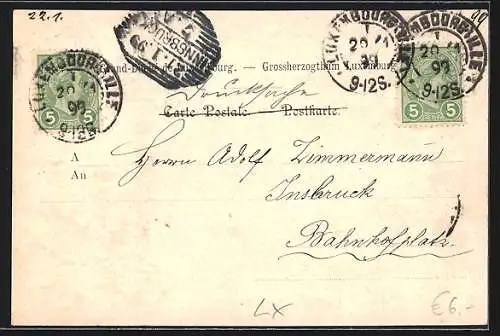 22.1. 99
LUXEMBOURG-VILLE
1
20 1
99
9-12S.
INNSBRUCK
LUXEMBOURG-VILLE
1
20 1
99
9-12S.
LUXEMBOURG-VILLE
1
20 1
99
9-12S.
Grand-Duché de Luxembourg. — Grossherzogthum Luxemburg
Drucksache
Carte Postale — Postkarte.
5 5
5 5
A
An
Herrn Adolf Zimmermann
Insbruck
Bahnhofplatz.
LX
€6,-